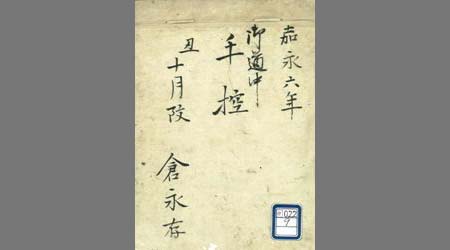 嘉永六年
御道中
手控
丑十月改
倉永存
1022
9